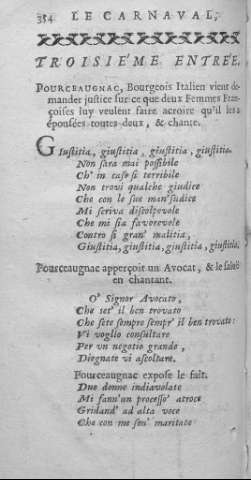 354 LE CARNAVAL,
TROISIÉME ENTRÉE.
POURCEAUGNAC, Bourgeois Italien vient de-
mander justice sur ce que deux Femmes Fran-
çoises luy veulent faire acroire qu'il les a
épousées toutes deux, & chante.
GIustitia, giustitia, giustitia, giustitia.
Non sara mai possibile
Ch' in caso si terribile
Non trovi qualche giudice
Che con le sue man'sudice
Mi scriva discolpevole
Che mi sia favorevole
Contro si gran' malitia,
Giustitia, giustitia, giustitia, giustitia.
Pourceaugnac apperçoit un Avocat, & le saluë
en chantant.
O' Signor Avocato,
Che set' il ben trovato
Che sete sempre sempr' il ben trovato:
Vi voglio consultare
Per vn negotio grande,
Diegnate vi ascoltare.
Pourceaugnac expose le fait.
Due donne indiavolate
Mi fann'un processo' atroce
Gridand' ad alta voce
Che con me son' maritate